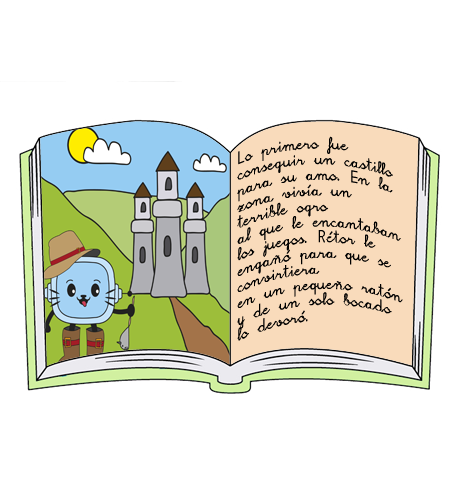 Lo primero fue
conseguir un castillo
para su amo. En la,
zona, vivía un
terrible ogro
al que le encantaban
los juegos. Rétor le
engañó para que se
convirtiera
en un pequeño ratón
y de un solo bocado
lo devoró.